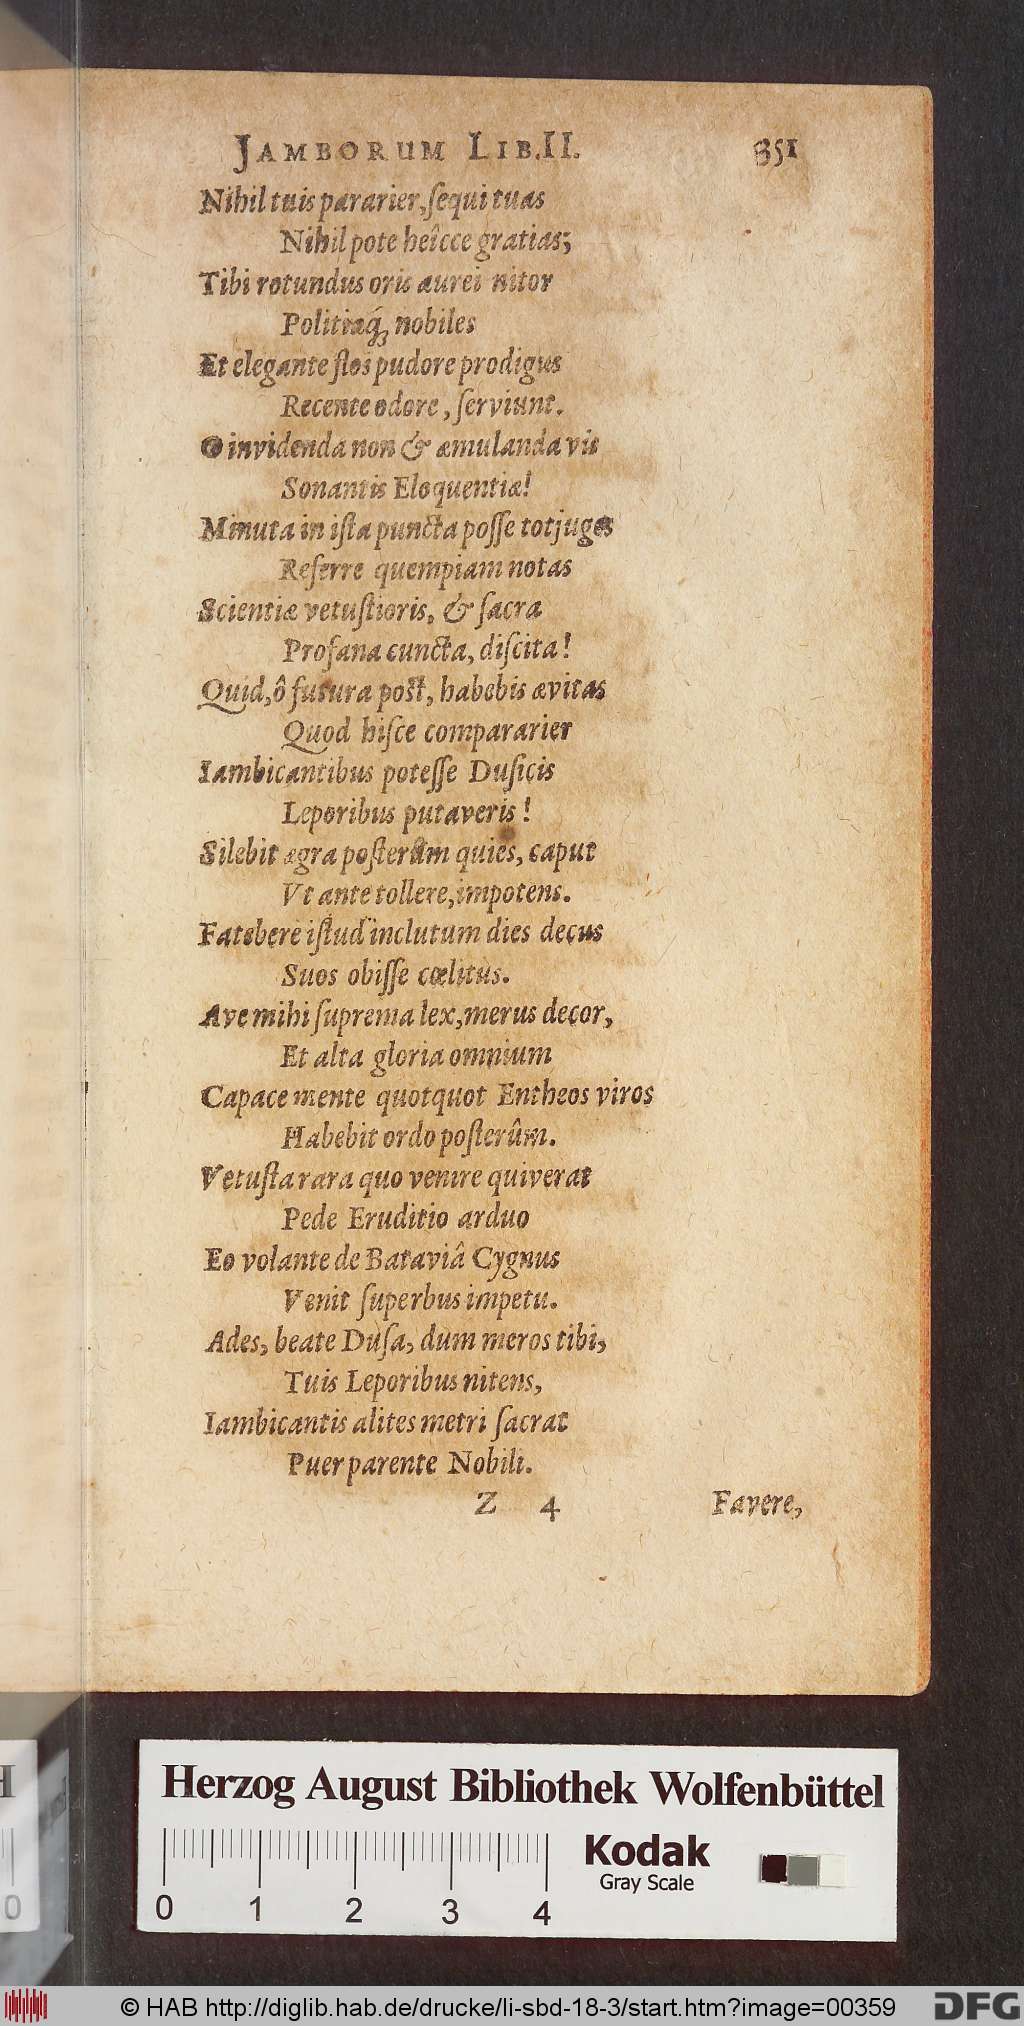 JAMBORUM LIB.II. 351
Nihil tuis pararier, ſequi tuas
Nihil pote heîcce gratias;
Tibi rotundus oris aurei nitor
Politiæq́; nobiles
Et elegante flos pudore prodigus
Recente odore, ſerviunt.
O invidenda non & æmulanda vis
Sonantis Eloquentiæ!
Minuta in iſta puncta poſſe tot juges
Referre quempiam notas
Scientiæ vetuſtioris, & ſacra
Profana cuncta, diſcita!
Quid, ô futura poſt, habebis ævitas
Quod hiſce compararier
Iambicantibus poteſſe Duſicis
Leporibus putaveris!
Silebit ægra poſterûm quies, caput
Vt ante tollere, impotens.
Fatebere iſtud inclutum dies decus
Suos obiſſe cœlitus.
Ave mihi ſuprema lex, merus decor,
Et alta gloria omnium
Capace mente quotquot Entheos viros
Habebit ordo poſterûm.
Vetuſta rara quo venire quiverat
Pede Eruditio arduo
Eo volante de Bataviâ Cygnus
Venit ſuperbus impetu.
Ades, beate Duſa, dum meros tibi,
Tuis Leporibus nitens,
Iambicantis alites metri ſacrat
Puer parente Nobili.
Z 4 Favere,
Herzog August Bibliothek Wolfenbüttel
Kodak
Gray Scale
0 1 2 3 4
© HAB http://diglib.hab.de/drucke/li-sbd-18-3/start.htm?image=00359
DFG